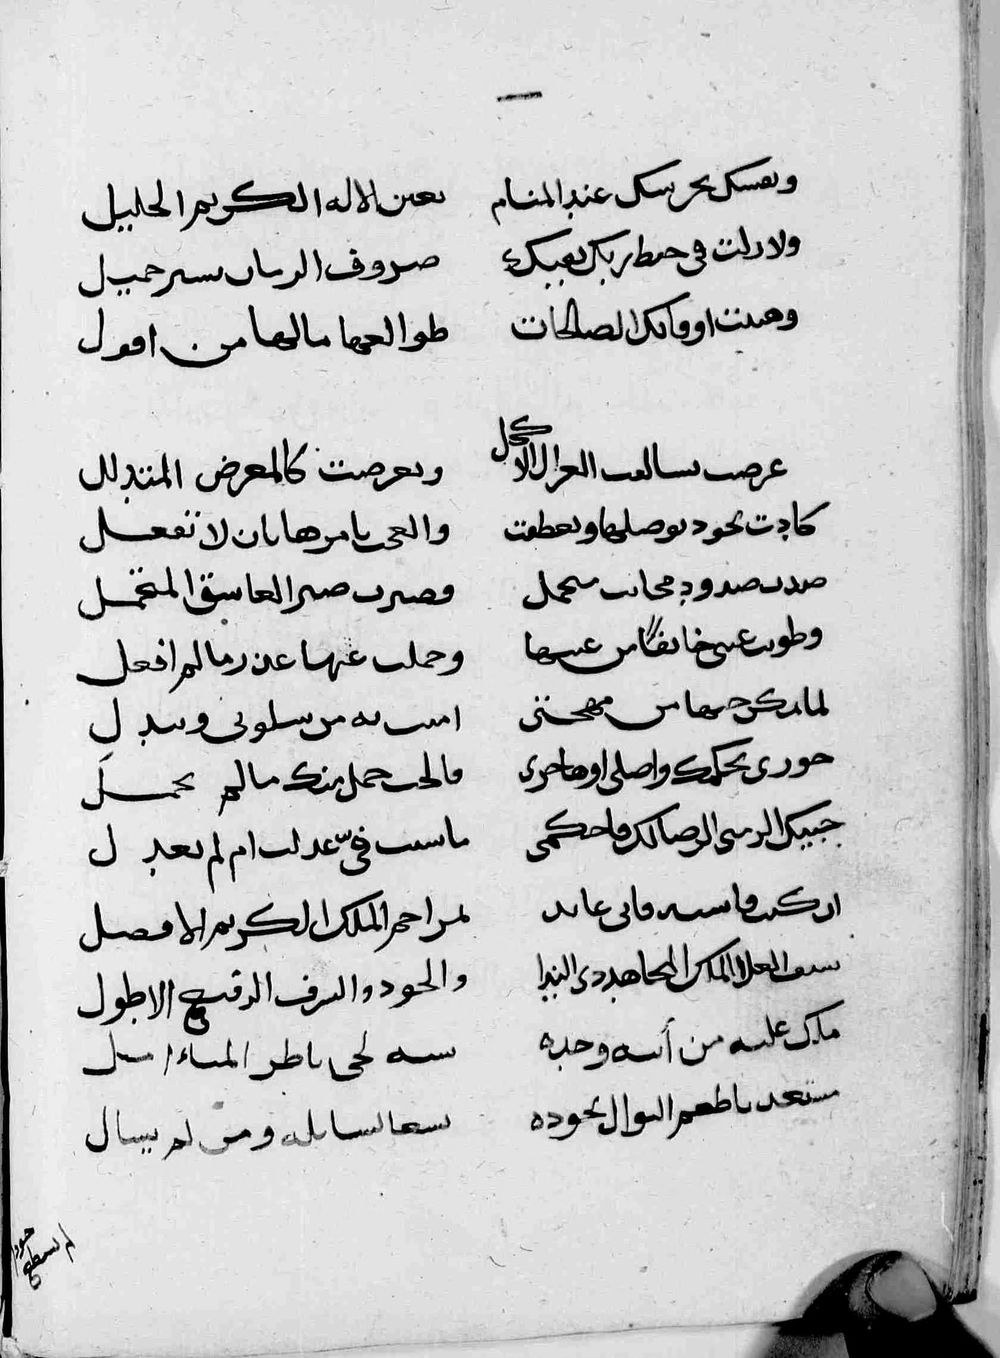 ونفسك يحرسك عند المنام بعين الاله الكريم الجليل
ولا زلت في حيط ربك يقيك صروف الزمان بستر جميل
وهنئت اوقاتك الصالحات طوالعها مالها من افول
عرضت بسالف الغزال الاكحل وتعرضت كالمعرض المتدلل
كادت تجود بوصلها وتعطفت والعجب يامرها بان لا تفعل
صدت صدود مجانب متجمل وصبرت صبر العاشق المتحمل
وطويت عني خائفا من عتبها وحملت عنها عذر مالم افعل
لما تمكن حبها من مهجتي من سلوتي وتبدل
جوري بحكمك واصلي او هاجري فالحب حمل منك مالم يحمل
جبيك الرضى لك فاحكمي ما شئت في عدلت ام لم تعدل
ان كنت قاسية فاني عائد لمراحم الملك الكريم الافضل
سيف العلا الملك المجاهد ذي الندا والجود والشرف الرفيع الاطول
ملك عليه من أبيه وحده
مستعد باطعم النوال بجوده لسائله ومن لم يسال
لم